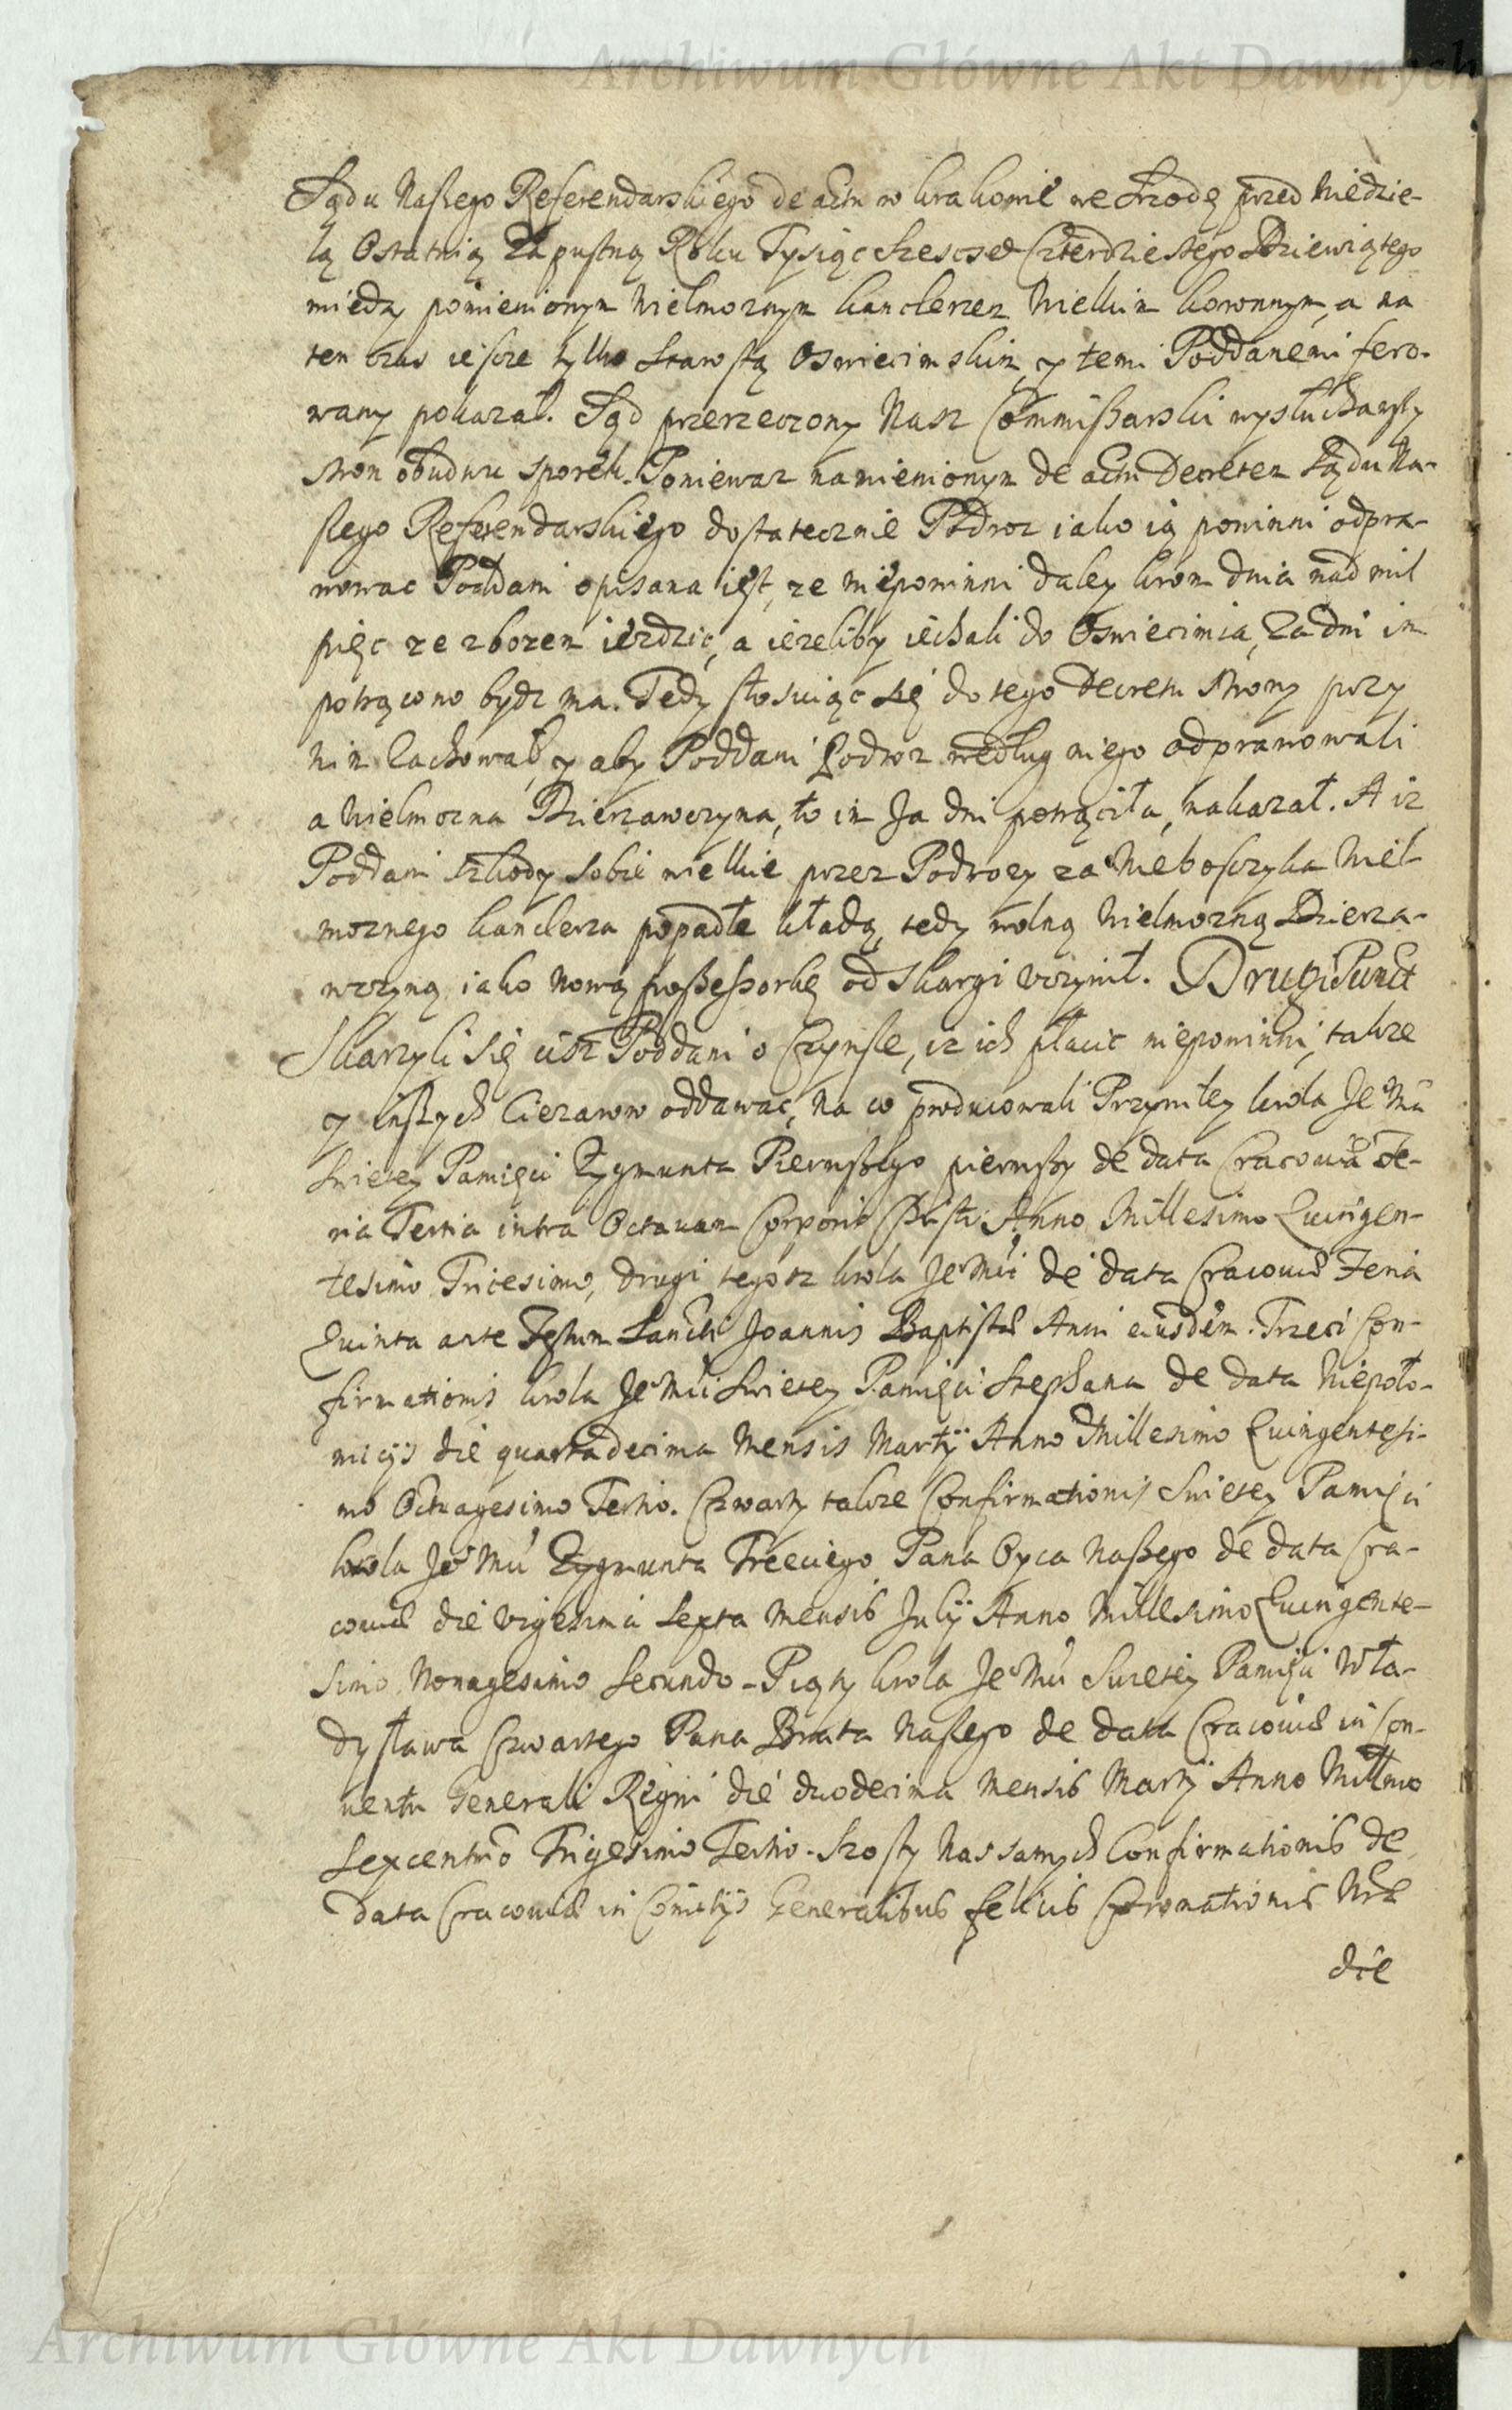 Archiwum Główne Akt Dawnych
Sądu Naszego Referendarskiego de actu w Krakowie we Srzodę przed Niedzie-
lą Ostatnią Zapustną Roku Tysiąc Szescset Czterdziestego Dziewiątego
miedzy pomienionym Wielmoznym Kanclerzem Wielkim koronnym, a na
ten czas ieszcze tylko Starostą Oswiecimskim, y temi Poddanemi fero-
wany pokazał. Sąd przerzeczony Nasz Commissarski wysłuchawszy
stron obudwu sporek. Poniewaz namienionym de actu Decretem Sądu Na-
szego Referendarskiego dostatecznie Podroz iako ią powinni odpra-
wowac Poddani opisana iest, ze niepowinni daley krom dnia nad mil
pięc ze zbozem iezdzic, a iezeliby iechali do Oswiecimia, Za dni im
potrącono bydz ma. Tedy stosuiąc się do tego Decretu strony przy
nim Zachował, y aby Poddani Podroz według niego odprawowali
a Wielmozna Dzierzawczyna, to im Za dni potrąciła, nakazał. A iz
Poddani szkody sobie wielkie przez Podrozy za Nieboszczyka Wiel-
moznego kanclerza popadłe kładą, tedy wolną Wielmozną Dzierza-
wczyną iako nową possessorkę od Skargi vczynił. Drugi Punct
Skarzyli się cisz Poddani o Czynsze, iz ich płacic niepowinni, takze
y inszych Ciezarow oddawac, na co producowali Przywiley krola Je° Mći
Swietey Pamięci Zygmunta Pierwszego pierwszy de data Cracoviæ Fe-
ria Tertia intra Octavam Corporis Christi Anno Millesimo Quingen-
tesimo Tricesimo, drugi tegosz krola Je° Mći de data Cracoviæ Feria
Quinta ante Festum Sancti Joannis Baptistæ Anni eiusdem. Trzeci Con-
firmationis krola Je° Mći Swietey Pamięci Stephana de data Niepoło-
miciis die quarta decima Mensis Martij Anno Millesimo Quingentesi-
mo Octuagesimo Tertio. Czwarty takze Confirmationis Swietey Pamięci
krola Je° Mći Zygmunta Trzeciego Pana Oyca Naszego de data Cra-
coviæ die vigesima Sexta Mensis Julij Anno Millesimo Quingente-
simo Nonagesimo Secundo. Piąty krola Je° Mći Swietey Pamięci Wła-
dysława Czwartego Pana Brata Naszego de data Cracoviæ in Con-
uentu Generali Regni die duodecima Mensis Martij Anno Millmo
Sexcentmo Trigesimo Tertio. Szosty Nas samych Confirmationis de
data Cracoviæ in Comitijs Generalibus felicis Coronationis Nræ
die
Archiwum Główne Akt Dawnych